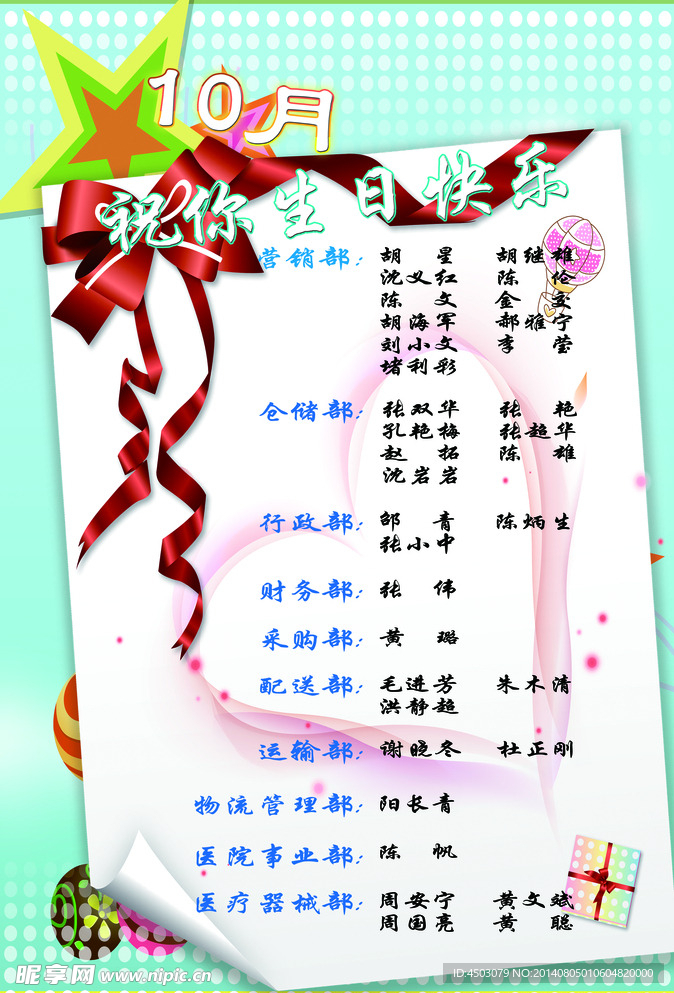 10月
祝你生日快乐
营销部: 胡 星 胡继雄
沈义红 陈 伦
陈 文 金 立
胡海军 郝雅宁
刘小文 李 莹
堵利彩
仓储部: 张双华 张 艳
孔艳梅 张超华
赵 拓 陈 雄
沈岩岩
行政部: 邹 青 陈炳生
张小中
财务部: 张 伟
采购部: 黄 璐
配送部: 毛进芳 朱木清
洪静超
运输部: 谢晓冬 杜正刚
物流管理部: 阳长青
医院事业部: 陈 帆
医疗器械部: 周安宁 黄文斌
周国亮 黄 聪
昵享网 www.nipic.cn
ID:4503079 NO:20140805010604820000